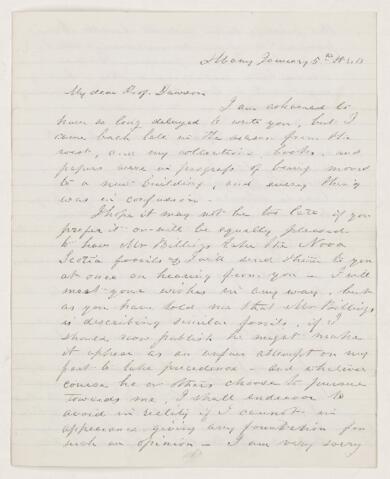 Albany January 5th
My dear Prof. Dawson
I am ashamed to
have so long delayed to write you, but I
came back late in the season from the
west, and my collections, books, and
papers were in progress of being moved
to a new building, and every thing
was in confusion.
I hope it may not be too late, if you
prefer it or will be equally pleased
to have Mr Billings take the Nova
Scotia fossils & I will send them to you
at once on hearing from you — I will
meet your wishes in any way, but
as you have told me that Mr Billings
is describing similar fossils, if I
should now publish he might make
it appear as an unfair attempt on my
part to take precedence — and whatever
course he or others choose to pursue
towards me, I shall endeavor to
avoid in reality if I cannot in
appearance giving any foundation for
such an opinion — I am very sorry